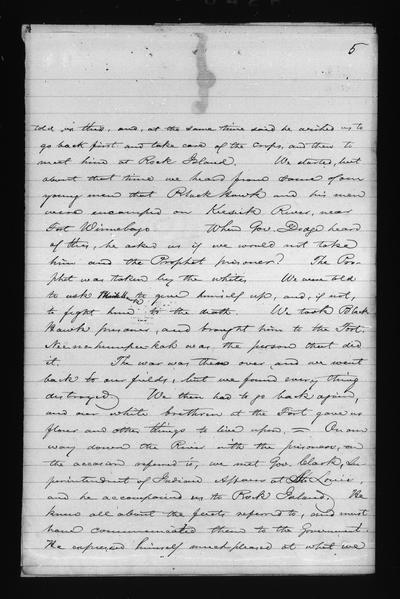 5
told us this, and, at the same time said he wished us to
go back first and take care of the Corps, and then to
meet him at Rock Island. We started, but
about that time we heard from some of our
young men that Black Hawk and his men
were encamped on River, near
Fort Winnebago. When Gov. Dodge heard
of this, he asked us if we would not take
him and the Prophet prisoner? The Pro-
phet was taken by the whites. We were told
to ask to give himself up, and, if not,
to fight him to the death. We took Black
Hawk prisoner, and brought him to the Fort.
was the person that did
it. The war was then over and we went
back to our fields, but we found every thing
destroyed. We then had to go back again,
and our white brethren at the Fort gave us
flour and other things to live upon. = On our
way down the River with the prisoners, on
the occasion referred to, we met Gov. Clark, Su-
perintendent of Indian Affairs at St. Louis,
and he accompanied us to Rock Island. He
knew all about the facts referred to, and must
have communicated them to the Government.
He expressed himself much pleased at what we